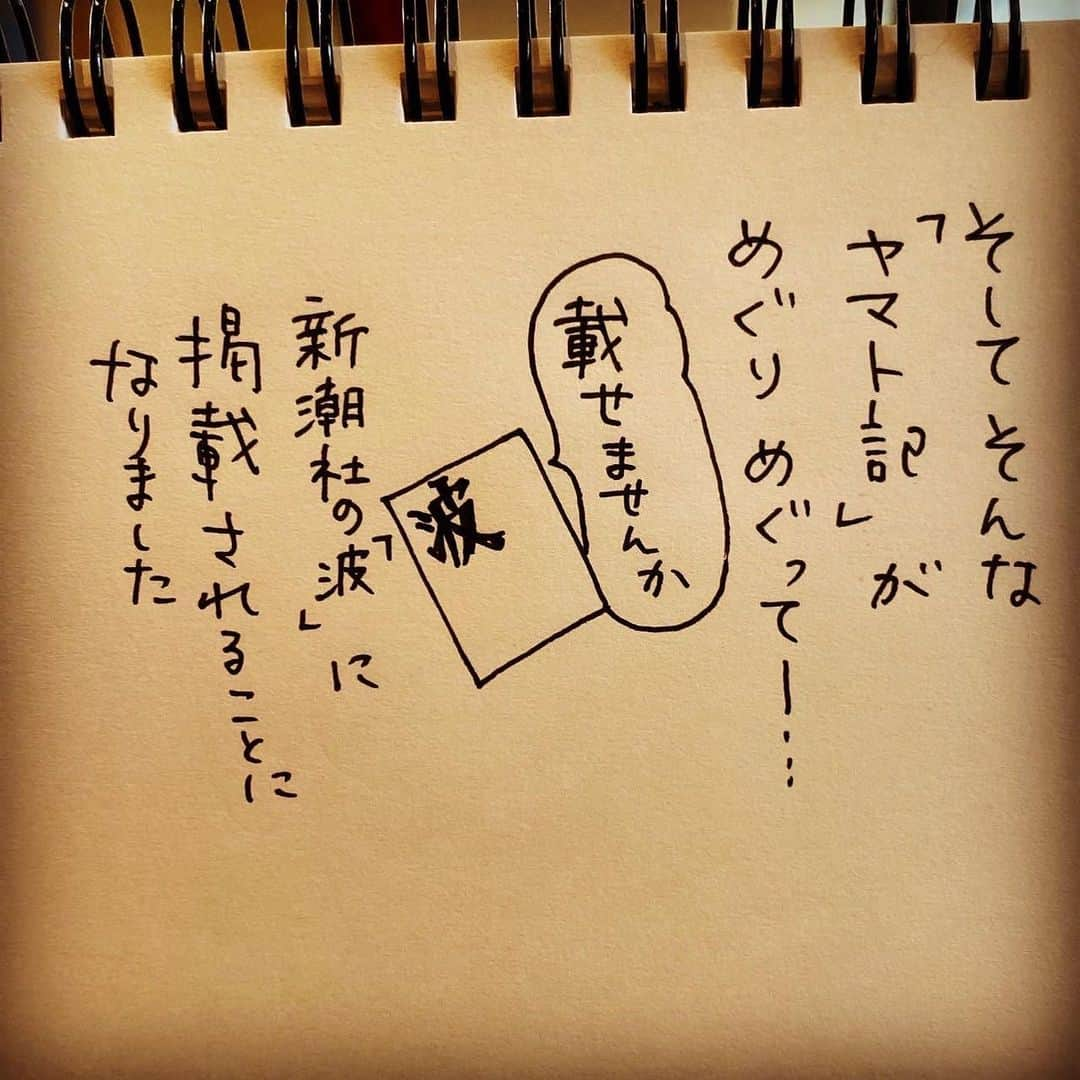 そしてそんな
「ヤマト記」が
めぐりめぐってー…
載せませんか
波
新潮社の「波」に
掲載されることに
なりました